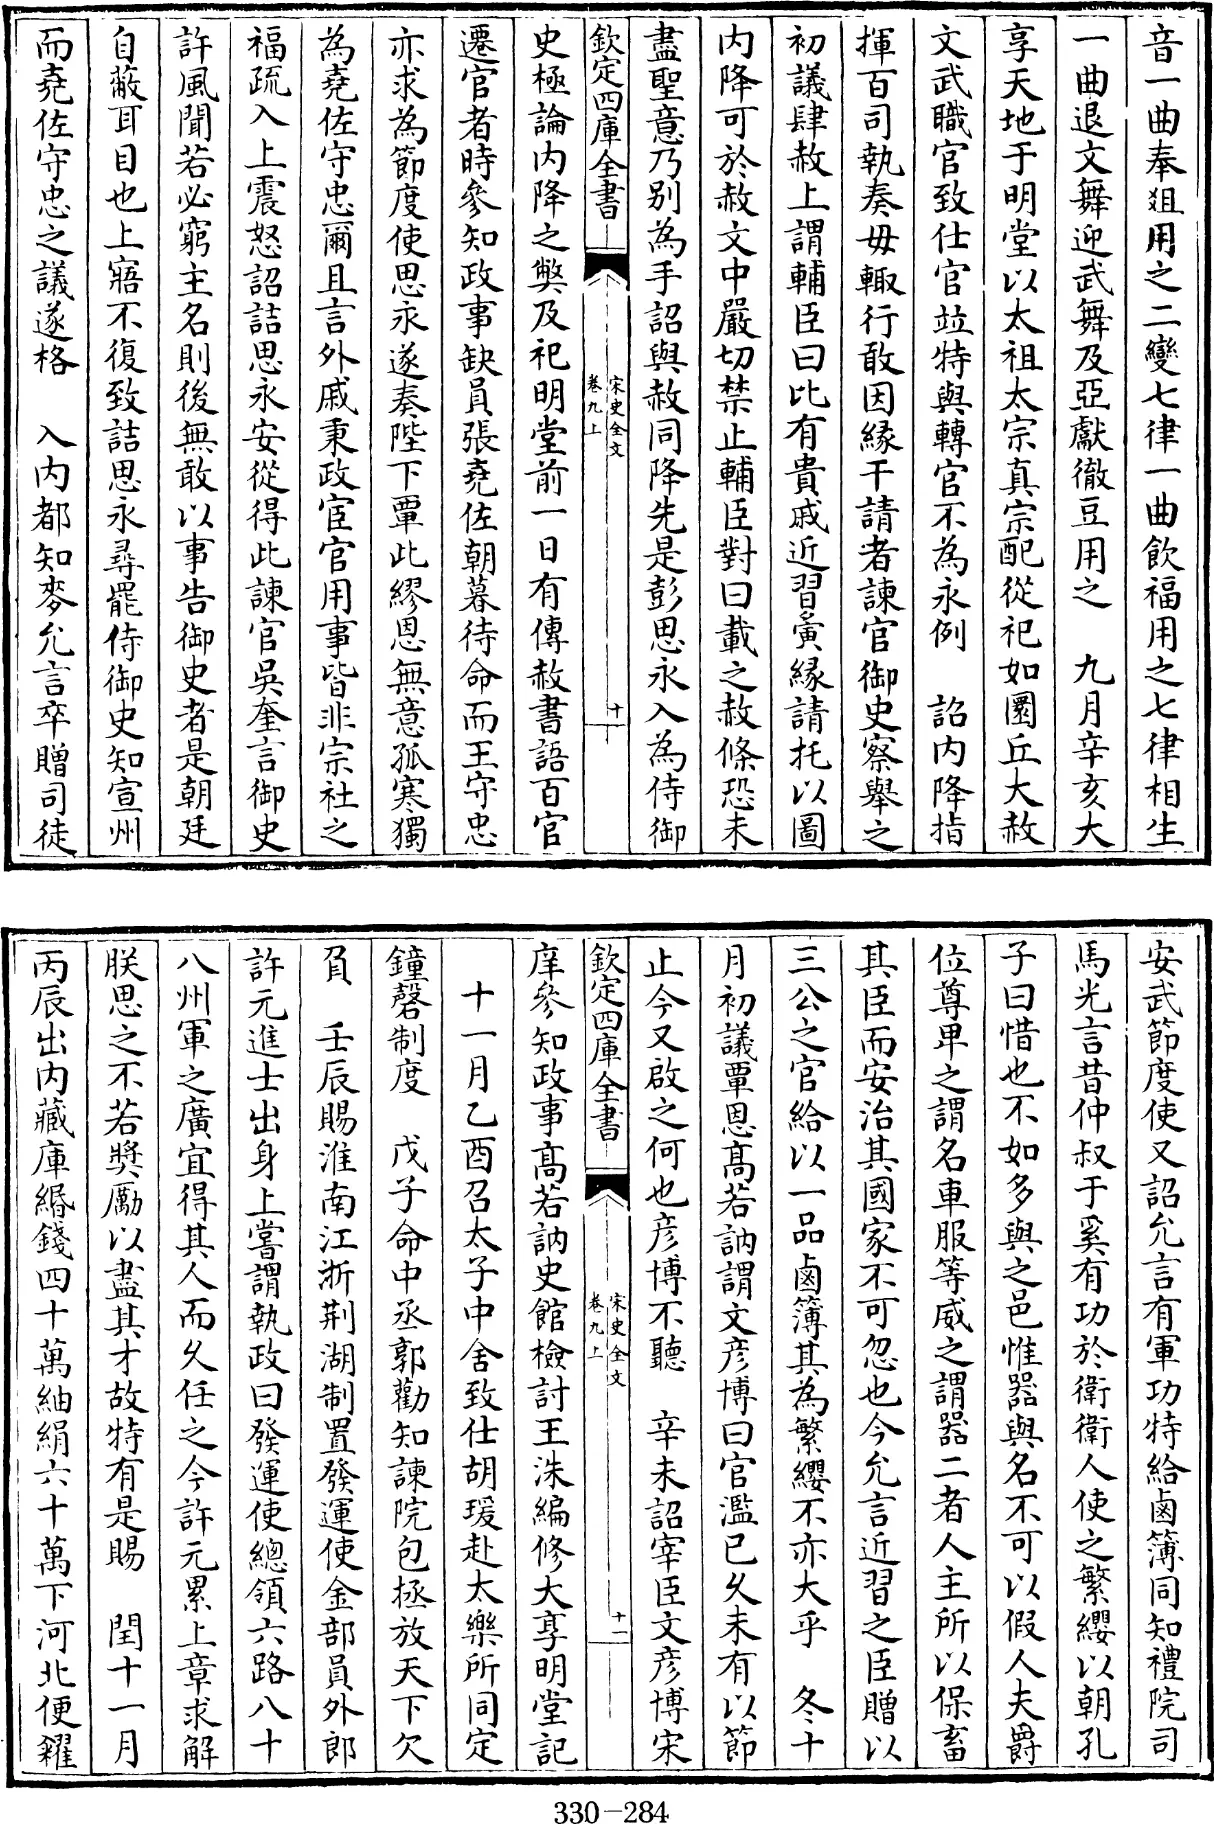 音一曲奉俎用之二變七律一曲飲福用之七律相生
一曲退文舞迎武舞及亞獻徹豆用之　九月辛亥大
享天地于明堂以太祖太宗真宗配從祀如圜丘大赦
文武職官致仕官竝特與轉官不為永例　詔内降指
揮百司執奏毋輒行敢因縁干請者諫官御史察舉之
初議肆赦上謂輔臣曰比有貴戚近習夤縁請托以圖
内降可於赦文中嚴切禁止輔臣對曰載之赦條恐未
盡聖意乃别為手詔與赦同降先是彭思永入為侍御
欽定四庫全書
宋史全文
卷九上
十
史極論内降之弊及祀明堂前一日有傳赦書語百官
遷官者時參知政事缺員張堯佐朝暮待命而王守忠
亦求為節度使思永遂奏陛下覃此繆恩無意孤寒獨
為堯佐守忠爾且言外戚秉政宦官用事皆非宗社之
福疏入上震怒詔詰思永安從得此諫官吳奎言御史
許風聞若必窮主名則後無敢以事告御史者是朝廷
自蔽耳目也上寤不復致詰思永尋罷侍御史知宣州
而堯佐守忠之議遂格　入内都知麥允言卒贈司徒
安武節度使又詔允言有軍功特給鹵簿同知禮院司
馬光言昔仲叔于奚有功於衛衛人使之繁纓以朝孔
子曰惜也不如多與之邑惟器與名不可以假人夫爵
位尊卑之謂名車服等威之謂器二者人主所以保畜
其臣而安治其國家不可忽也今允言近習之臣贈以
三公之官給以一品鹵簿其為繁纓不亦大乎　冬十
月初議覃恩髙若訥謂文彦博曰官濫已久未有以節
止今又啟之何也彦博不聽　辛未詔宰臣文彦博宋
欽定四庫全書
宋史全文
卷九上
十一
庠參知政事髙若訥史館檢討王洙編修大享明堂記
十一月乙酉召太子中舍致仕胡瑗赴太樂所同定
鐘磬制度　戊子命中丞郭勸知諫院包拯放天下欠
負　壬辰賜淮南江浙荆湖制置發運使金部員外郎
許元進士出身上嘗謂執政曰發運使總領六路八十
八州軍之廣宜得其人而久任之今許元累上章求解
朕思之不若奬厲以盡其才故特有是賜　閏十一月
丙辰出内藏庫緡錢四十萬紬絹六十萬下河北便糴
330-284